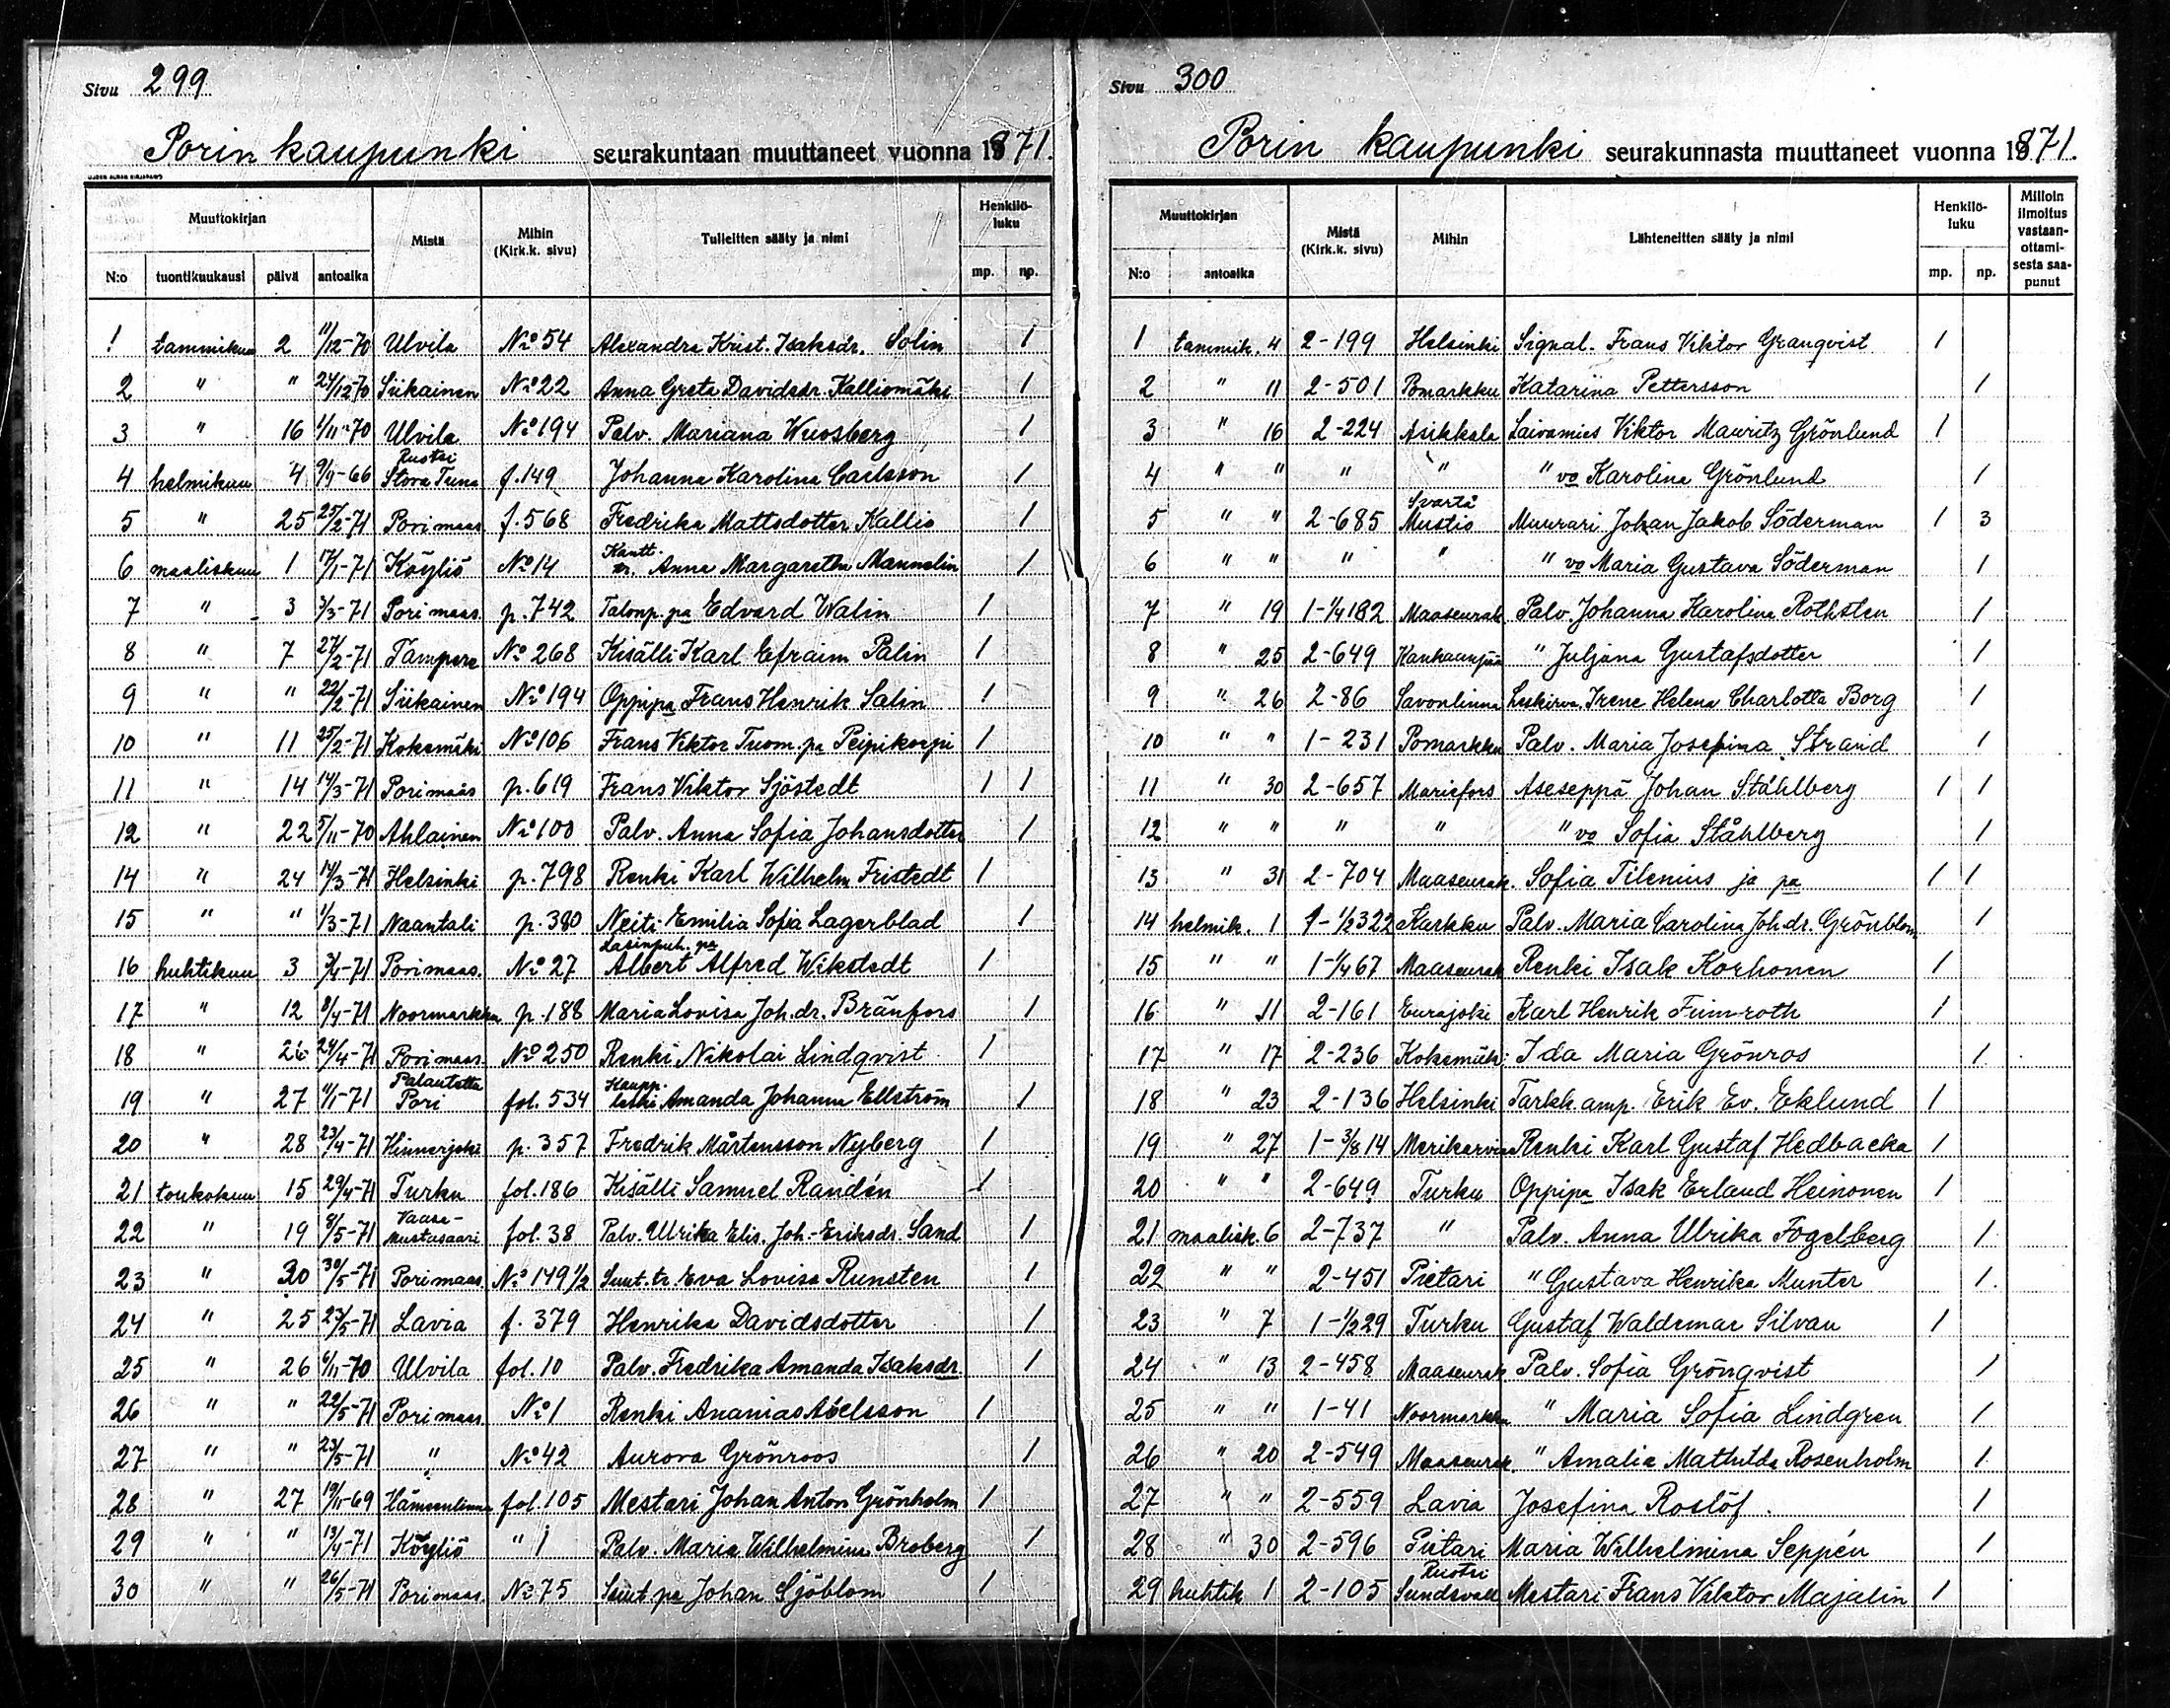 Sivu 299
Porin kaupunki seurakuntaan muuttaneet vuonna 1871.
Muuttokirjan Mistä Mihin (Kirk.k. sivu) Tulleitten sääty ja nimi Henkilö-luku
N:o tuontikuukausi päivä antoaika mp. np.
1 tammikuu 2 11/12-70 Ulvila No 54 Alexandra Krist. Isaksdr. Solin 1
2 " " 24/12-70 Siikainen No 22 Anna Greta Davidsdr. Kalliomäki 1
3 " 16 1/11-70 Ulvila No 194 Palv. Mariana Wuosberg 1
Ruotsi
4 helmikuu 4 9/9-66 Stora Tuna f. 149 Johanna Karolina Carlsson 1
5 " 25 25/2-71 Pori maas. f. 568 Fredrika Mattsdotter Kallio 1
Kantt.
6 maaliskuu 1 17/1-71 Köyliö No 14 tr. Anna Margaretha Mannelin 1
7 " 3 3/3-71 Pori maas. p. 742 Talonp. pa Edvard Walin 1
8 " 7 27/2-71 Tampere No 268 Kisälli Karl Efraim Palin 1
9 " " 22/2-71 Siikainen No 194 Oppipa Frans Henrik Salin 1
10 " 11 25/2-71 Kokemäki No 106 Frans Viktor Tuom. pa Peipikorpi 1
11 " 14 14/3-71 Pori maas p. 619 Frans Viktor Sjöstedt 1 1
12 " 22 5/11-70 Ahlainen No 100 Palv. Anna Sofia Johansdotter 1
14 " 24 14/3-71 Helsinki p. 798 Renki Karl Wilhelm Fristedt 1
15 " " 1/3-71 Naantali p. 380 Neiti Emilia Sofia Lagerblad 1
Lasinpuh. pa
16 huhtikuu 3 3/4-71 Pori maas. No 27 Albert Alfred Wikstedt 1
17 " 12 8/4-71 Noormarkku p. 188 Maria Lovisa Joh.dr. Bränfors 1
18 " 26 24/4-71 Pori maas. No 250 Renki Nikolai Lindqvist 1
Palautettu Kaupp.
19 " 27 11/1-71 Pori fol. 534 leski Amanda Johanna Ellström 1
20 " 28 23/4-71 Hinnerjoki p. 357 Fredrik Mårtensson Nyberg 1
21 toukokuu 15 29/4-71 Turku fol. 186 Kisälli Samuel Randén 1
Vaasa-
22 " 19 8/5-71 Mustasaari fol. 38 Palv. Ulrika Elis. Joh.-Eriksdr. Sand 1
23 " 20 30/5-71 Pori maas. No 149 1/2 Suut. tr. Eva Lovisa Runsten 1
24 " 25 23/5-71 Lavia f. 379 Henrika Davidsdotter 1
25 " 26 6/11-70 Ulvila fol. 10 Palv. Fredrika Amanda Isaksdr. 1
26 " " 22/5-71 Pori maas. No 1 Renki Ananias Abelsson 1
27 " " 23/5-71 " No 42 Aurora Grönroos 1
28 " 27 19/11-69 Hämeenlinna fol. 105 Mestari Johan Anton Grönholm 1
29 " " 13/4-71 Köyliö " 1 Palv. Maria Wilhelmina Broberg 1
30 " " 26/5-71 Pori maas. No 75 Suut. pa Johan Sjöblom 1
Sivu 300
Porin kaupunki seurakunnasta muuttaneet vuonna 1871.
Muuttokirjan Mistä (Kirk.k. sivu) Mihin Lähteneitten sääty ja nimi Henkilö-luku Milloin ilmoitus vastaan-ottami-sesta saa-punut
N:o antoaika mp. np.
1 tammik. 4 2-199 Helsinki Signal. Frans Viktor Granqvist 1
2 " 11 2-501 Pomarkku Katarina Pettersson 1
3 " 16 2-224 Asikkala Laivamies Viktor Mauritz Grönlund 1
4 " " " " " vo Karolina Grönlund 1
Svartå
5 " " 2-685 Mustio Muurari Johan Jakob Söderman 1 3
6 " " " " " vo Maria Gustava Söderman 1
7 " 19 1-1/4 182 Maaseurak Palv. Johanna Karolina Rothsten 1
8 " 25 2-649 Kankaanpää " Juljana Gustafsdotter 1
9 " 26 2-86 Savonlinna Leskirva Irene Helena Charlotta Borg 1
10 " " 1-231 Pomarkku Palv. Maria Josefina Strand 1
11 " 30 2-657 Mariefors Aseseppä Johan Ståhlberg 1 1
12 " " " " " vo Sofia Ståhlberg 1
13 " 31 2-704 Maaseurak. Sofia Tilenius ja pa 1 1
14 helmik. 1 1-1/2 322 Karkku Palv. Maria Carolina Joh.dr. Grönblom 1
15 " " 1-1/4 67 Maaseurak Renki Isak Korhonen 1
16 " 11 2-161 Eurajoki Karl Henrik Fumroth 1
17 " 17 2-236 Kokemäki Ida Maria Grönros 1
18 " 23 2-136 Helsinki Tarkk. amp. Erik Ev. Eklund 1
19 " 27 1-3/8 14 Merikarvia Renki Karl Gustaf Hedbacka 1
20 " " 2-649 Turku Oppipa Isak Erland Heinonen 1
21 maalisk. 6 2-737 " Palv. Anna Ulrika Fogelberg 1
22 " " 2-451 Pietari " Gustava Henrika Munter 1
23 " 7 1-1/2 29 Turku Gustaf Waldemar Silvan 1
24 " 13 2-458 Maaseurak Palv. Sofia Grönqvist 1
25 " " 1-41 Noormarkku " Maria Sofia Lindgren 1
26 " 20 2-549 Maaseurak. " Amalia Mathilda Rosenholm 1
27 " " 2-559 Lavia Josefina Roslöf 1
28 " 30 2-596 Pietari Maria Wilhelmina Seppén 1
Ruotsi
29 huhtik 1 2-105 Sundsvall Mestari Frans Viktor Majalin 1